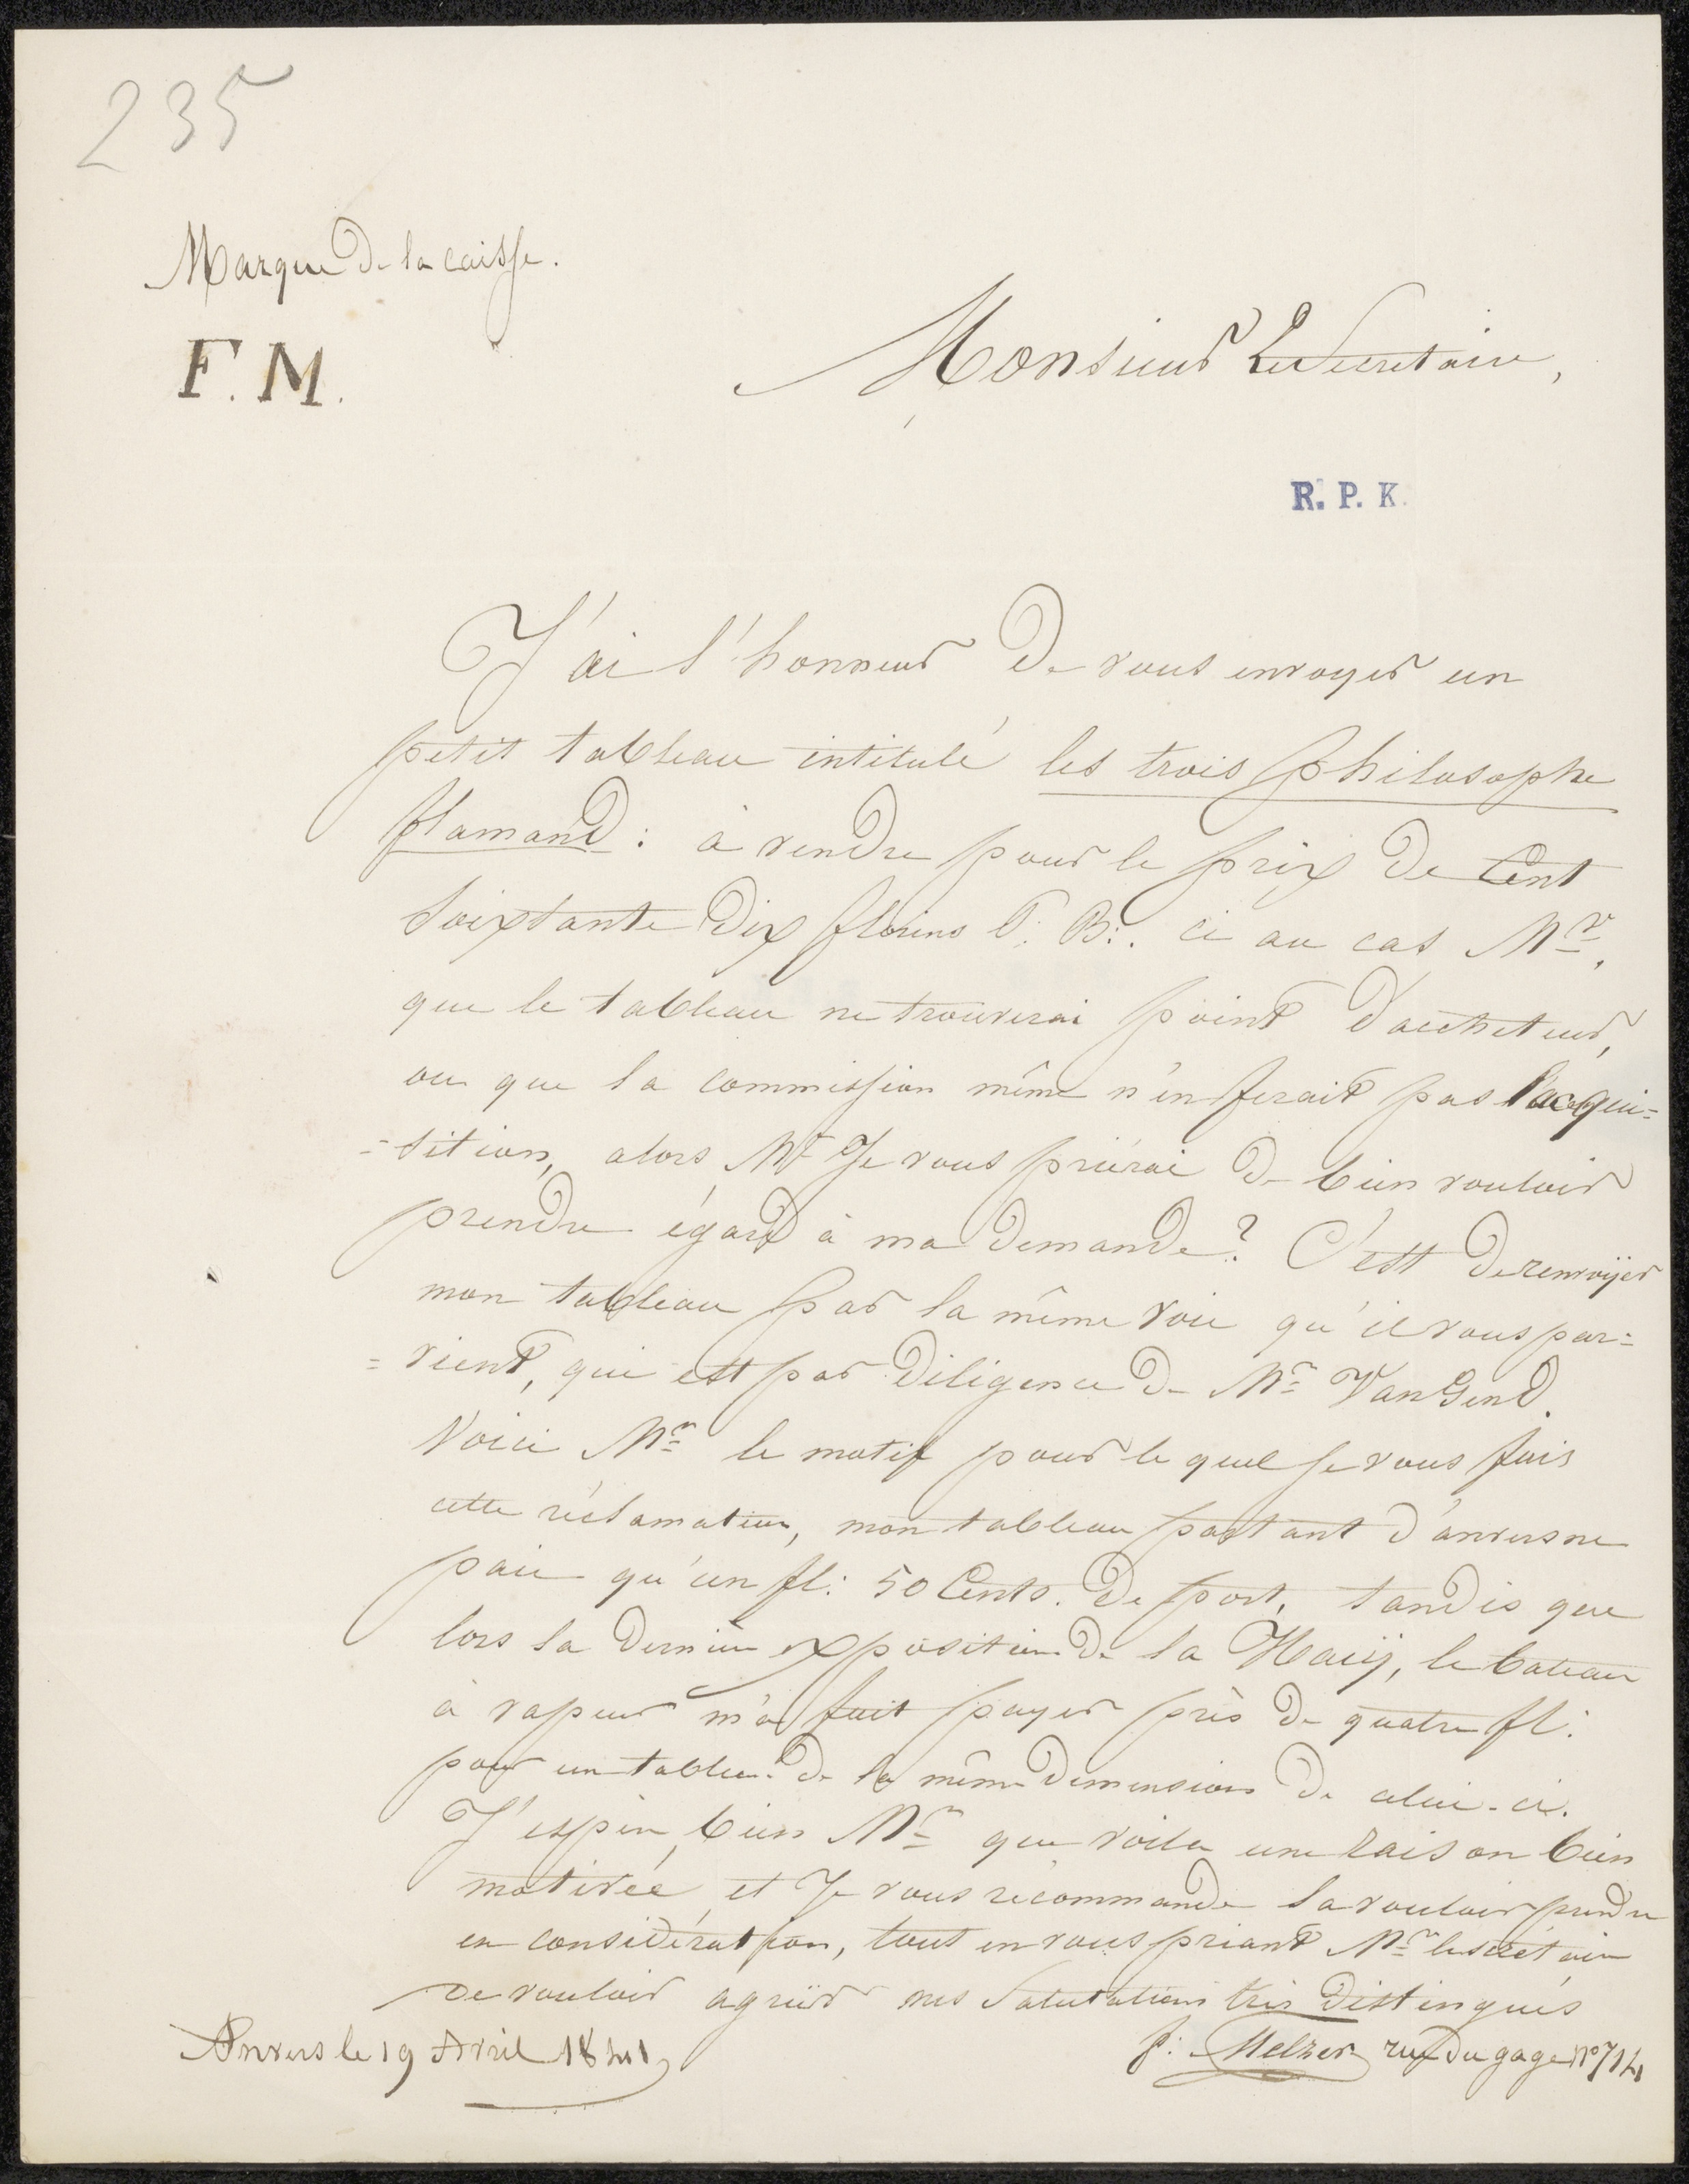 235
Marque de la caisse.
F. M.
Monsieur Le Secretaire,
R. P. K.
J'ai l'honneur de vous envoyer un
petit tableau intitulé les trois philosophe
flamand : à vendre pour le prix de Cent
Soixtante Dix florins P: B:. ci au cas Mr,
que le tableau ne trouverai point d'acheteur,
ou que la commission même n'en ferait pas l'acqui=
=sition, alors, Mr Je vous priérai de bien vouloir
prendre égard à ma demande? C'est de renvoÿer
mon tableau par la même voie qu'il vous par=
=vient, qui est par Diligence de Mr Van Gend.
Voici Mr le motif pour le quel Je vous fais
cette réclamation, mon tableau partant d'anvers ne
paie qu'un fl: 50 Cents. de port, tandis que
lors la dernière exposition de la Haÿ, le bateau
à vapeur m'a fait payer près de quatre fl:
pour un tableau de la même dimension de celui-ci.
J'espère bien Mr que voila une raison bien
motivée, et Je vous récommande la vouloir prendre
en considération, tout en vous priant Mr le secrétaire
de vouloir agréer mes Salutations très Distingués
Anvers le 19 Avril 1841
f: Melzer rue du gage no 714